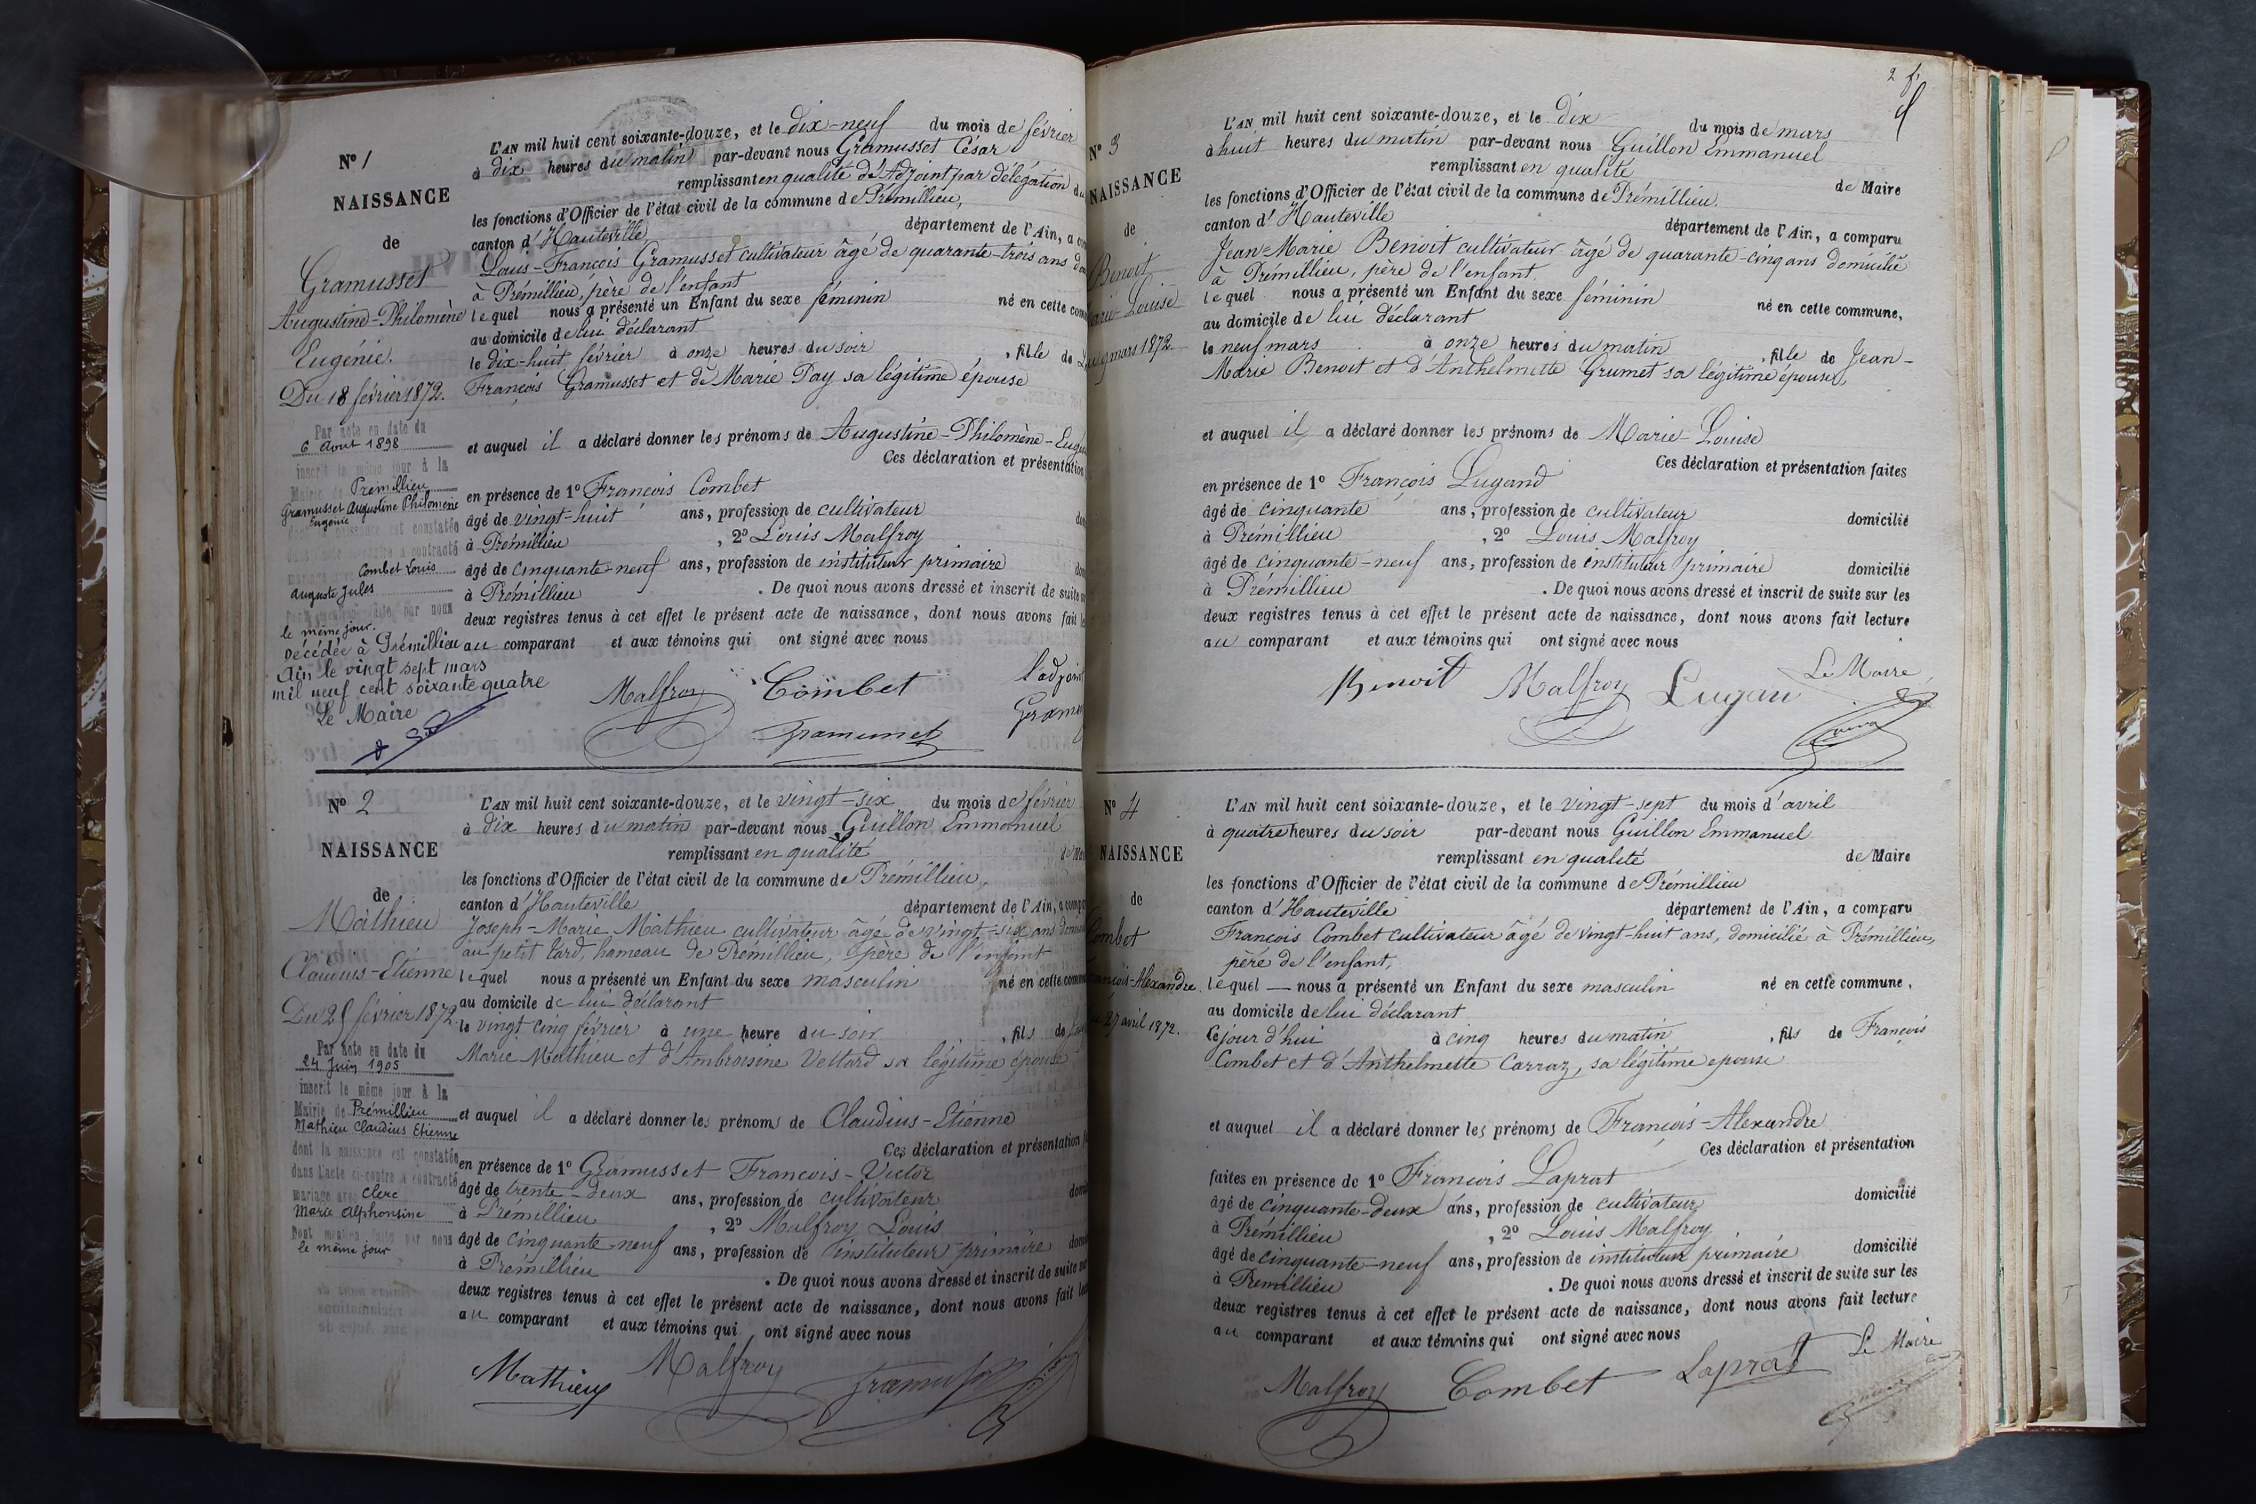 Nº 1
NAISSANCE
de
Gramusset
Augustine-Philomène
Eugénie.
Du 18 février 1872.
Par acte en date du
6 Aout 1898
inscrit le même jour à la
Mairie de Prémillieu
Gramusset Augustine Philomène
Eugénie
dont la naissance est constatée
dans l'acte ci-contre a contracté
mariage avec Combet Louis
Auguste Jules
Dont mention faite par nous
le même jour.
Décédée à Prémillieu
Ain le vingt sept mars
mil neuf cent soixante quatre
Le Maire
L'AN mil huit cent soixante-douze, et le dix-neuf du mois de février
à dix heures du matin par-devant nous Gramusset César
remplissant en qualité d'Adjoint par délégation du
les fonctions d'Officier de l'état civil de la commune de Prémillieu,
canton d'Hauteville département de l'Ain, a
Louis-François Gramusset cultivateur âgé de quarante-trois ans
à Prémillieu, père de l'enfant
lequel nous a présenté un Enfant du sexe féminin né en cette
au domicile de lui déclarant
le dix-huit février à onze heures du soir, fille de
François Gramusset et de Marie Pay sa légitime épouse
et auquel il a déclaré donner les prénoms de Augustine-Philomène-
Ces déclaration et présentation
en présence de 1º François Combet
âgé de vingt-huit ans, profession de cultivateur
à Prémillieu, 2º Louis Malfroy
âgé de cinquante-neuf ans, profession de instituteur primaire
à Prémillieu. De quoi nous avons dressé et inscrit de suite
deux registres tenus à cet effet le présent acte de naissance, dont nous avons fait
au comparant et aux témoins qui ont signé avec nous
Malfroy Combet l'adjoint
Gramusset
Nº 2
NAISSANCE
de
Mathieu
Claudius-Etienne
Du 25 février 1872
Par acte en date du
24 Juin 1905
inscrit le même jour à la
Mairie de Prémillieu
Mathieu Claudius Etienne
dont la naissance est constatée
dans l'acte ci-contre a contracté
mariage avec Clerc
Marie Alphonsine
Dont mention faite par nous
le même jour
L'AN mil huit cent soixante-douze, et le vingt-six du mois de février
à dix heures du matin par-devant nous Guillon Emmanuel
remplissant en qualité
les fonctions d'Officier de l'état civil de la commune de Prémillieu,
canton d'Hauteville département de l'Ain, a
Joseph-Marie Mathieu cultivateur âgé de vingt-six ans
au petit Lard, hameau de Prémillieu, père de l'enfant
lequel nous a présenté un Enfant du sexe masculin né en cette
au domicile de lui déclarant
le vingt cinq février à une heure du soir, fils de
Marie Mathieu et d'Ambroisine Vettard sa légitime épouse
et auquel il a déclaré donner les prénoms de Claudius-Etienne
Ces déclaration et présentation
en présence de 1º Gramusset François-Victor
âgé de trente-deux ans, profession de cultivateur
à Prémillieu, 2º Malfroy Louis
âgé de cinquante-neuf ans, profession de instituteur primaire
à Prémillieu. De quoi nous avons dressé et inscrit de suite
deux registres tenus à cet effet le présent acte de naissance, dont nous avons fait
au comparant et aux témoins qui ont signé avec nous
Mathieu Malfroy Gramusset
2 f.
Nº 3
NAISSANCE
de
Benoit
Louise
mars 1872
L'AN mil huit cent soixante-douze, et le dix du mois de mars
à huit heures du matin par-devant nous Guillon Emmanuel
remplissant en qualité de Maire
les fonctions d'Officier de l'état civil de la commune de Prémillieu.
canton d'Hauteville département de l'Ain, a comparu
Jean-Marie Benoit cultivateur âgé de quarante-cinq ans domicilié
à Prémillieu, père de l'enfant
lequel nous a présenté un Enfant du sexe féminin né en cette commune,
au domicile de lui déclarant
le neuf mars à onze heures du matin, fille de Jean-
Marie Benoit et d'Anthelmette Grumet sa légitime épouse,
et auquel il a déclaré donner les prénoms de Marie-Louise
Ces déclaration et présentation faites
en présence de 1º François Lugand
âgé de cinquante ans, profession de cultivateur domicilié
à Prémillieu, 2º Louis Malfroy
âgé de cinquante-neuf ans, profession de instituteur primaire domicilié
à Prémillieu. De quoi nous avons dressé et inscrit de suite sur les
deux registres tenus à cet effet le présent acte de naissance, dont nous avons fait lecture
au comparant et aux témoins qui ont signé avec nous
Benoit Malfroy Lugan Le Maire,
Nº 4
NAISSANCE
de
Combet
François-Alexandre.
27 avril 1872.
L'AN mil huit cent soixante-douze, et le vingt-sept du mois d'avril
à quatre heures du soir par-devant nous Guillon Emmanuel
remplissant en qualité de Maire
les fonctions d'Officier de l'état civil de la commune de Prémillieu
canton d'Hauteville département de l'Ain, a comparu
François Combet cultivateur âgé de vingt-huit ans, domicilié à Prémillieu,
père de l'enfant,
lequel — nous a présenté un Enfant du sexe masculin né en cette commune,
au domicile de lui déclarant
le jour d'hui à cinq heures du matin, fils de François
Combet et d'Anthelmette Carraz, sa légitime epouse
et auquel il a déclaré donner les prénoms de François-Alexandre
Ces déclaration et présentation
faites en présence de 1º François Laprat
âgé de cinquante-deux ans, profession de cultivateur domicilié
à Prémillieu, 2º Louis Malfroy
âgé de cinquante-neuf ans, profession de instituteur primaire domicilié
à Prémillieu. De quoi nous avons dressé et inscrit de suite sur les
deux registres tenus à cet effet le présent acte de naissance, dont nous avons fait lecture
au comparant et aux témoins qui ont signé avec nous
Malfroy Combet Laprat Le Maire